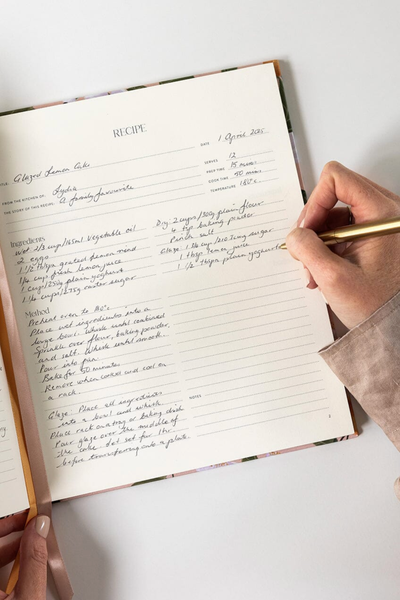 RECIPE
TITLE: Glazed Lemon Cake
DATE 1 April 2025
FROM THE KITCHEN OF Lydia
THE STORY OF THIS RECIPE: A family favourite
SERVES 12
PREP TIME 15 mins
COOK TIME 50 mins
TEMPERATURE 180°c
Ingredients
Wet: 2/3 cup/165ml vegetable oil
2 eggs
1 1/2 tbspn grated lemon rind
1/4 cup fresh lemon juice
1 cup/250g plain yoghurt
1 1/4 cup/275g caster sugar
Dry: 2 cups/300g plain flour
tsp baking powder
Pinch salt
Glaze: 1 cup icing sugar
1 tbspn lemon juice
1 1/2 tbspn plain yoghurt
Method
Preheat oven to 180°c
Place wet ingredients into a
large bowl. Whisk until combined
Sprinkle over flour, baking powder,
and salt. Whisk until smooth.
Pour into pan.
Bake for 50 minutes
Remove when cooked and cool on
a rack.
Glaze: Place all ingredients
into a bowl and whisk
Place rack on a tray or baking dish
Pour glaze over the middle of
the cake. Let set for 1hr
before transferring onto a plate.
NOTES